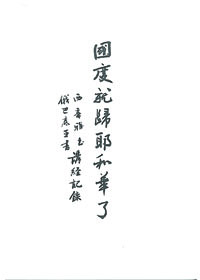 國度就歸耶和華了
西番雅書講經記錄
俄巴底亞書